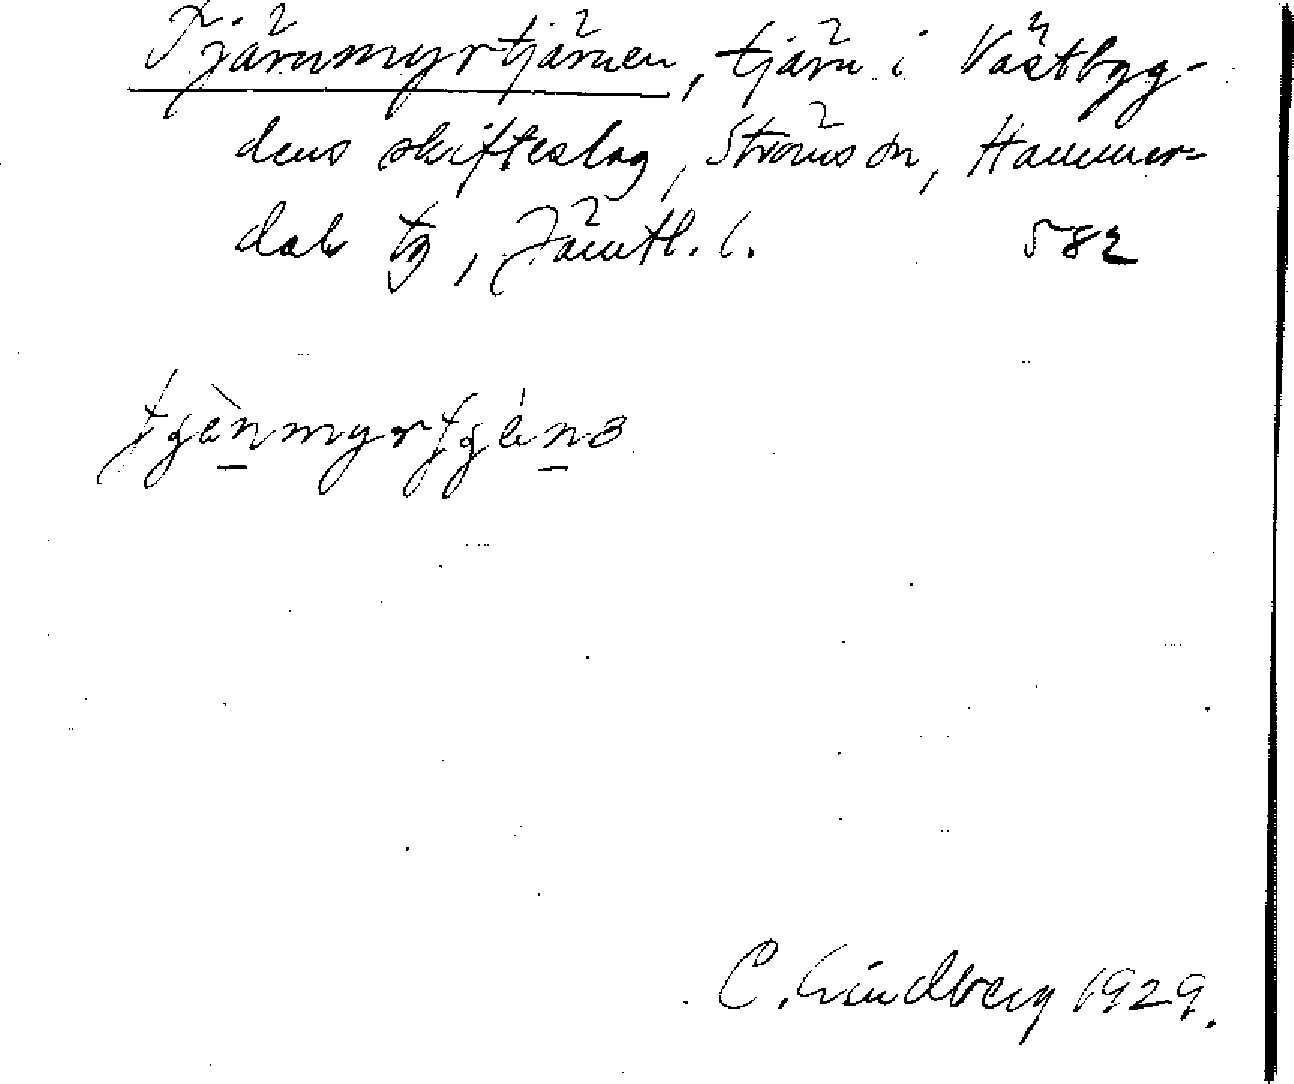 Tjärnmyrtjärnen, tjärn i Västbyg-
dens skifteslag, Ströms sn, Hammer-
dals tg, Jämtl. l. 582
C. Lindberg 1929.